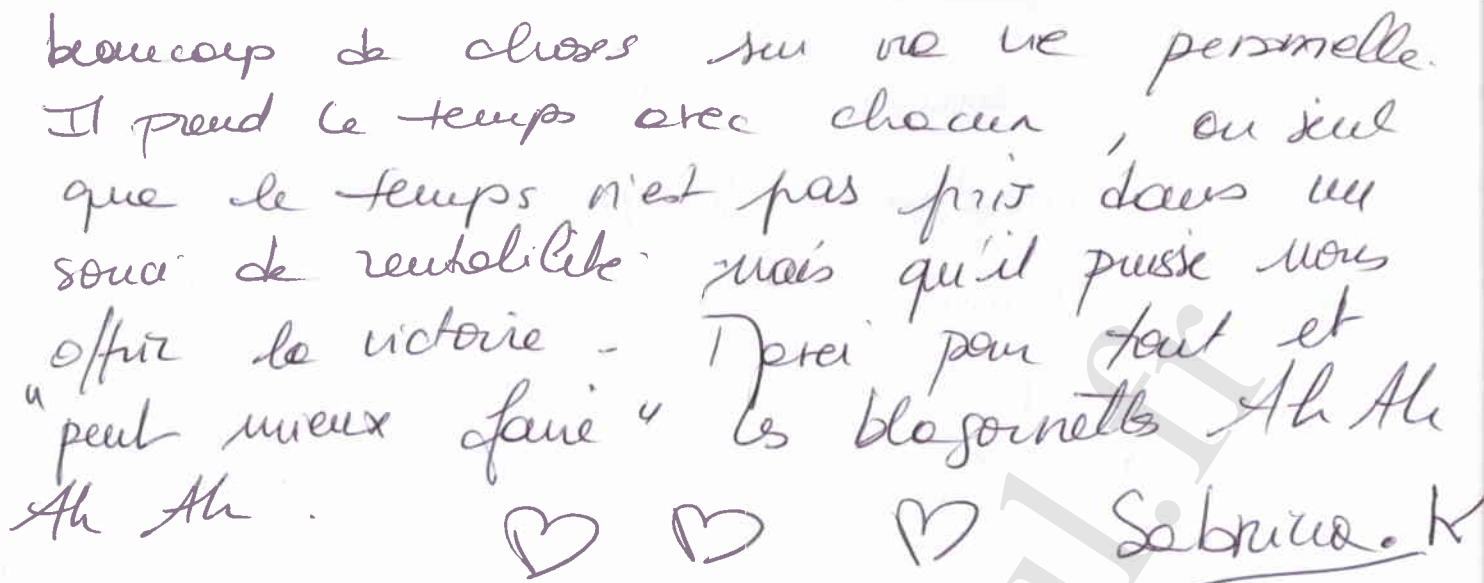 beaucoup de choses sur ma vie personnelle.
Il prend le temps avec chacun, on sent
que le temps n'est pas pris dans un
souci de rentabilité mais qu'il puisse nous
offrir la victoire - Merci pour tout et
"peut mieux faire" les blagounettes Ah Ah
Ah Ah.
Sabrina. K